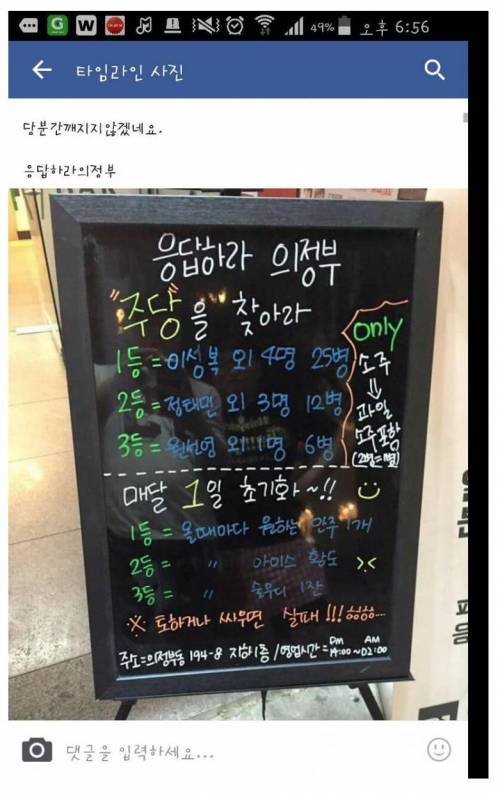 49% 오후 6:56
타임라인 사진
당분간깨지지않겠네요.
응답하라의정부
응답하라 의정부
"주당"을 찾아라
only
소주
⇓
과일
소주포함
(2병=1병)
1등=이성복 외 4명 25병
2등=정태민 외 3명 12병
3등=원선영 외 1명 6병
매달 1일 초기화~!!
1등= 올때마다 원하는 안주 1개
2등= 〃 아이스 황도
3등= 〃 슬우디 1잔
※ 토하거나 싸우면 실패!!! ㅎㅎㅎ...
주소=의정부동 194-8 지하1층/영업시간= PM 19:00~AM 02:00
댓글을 입력하세요...